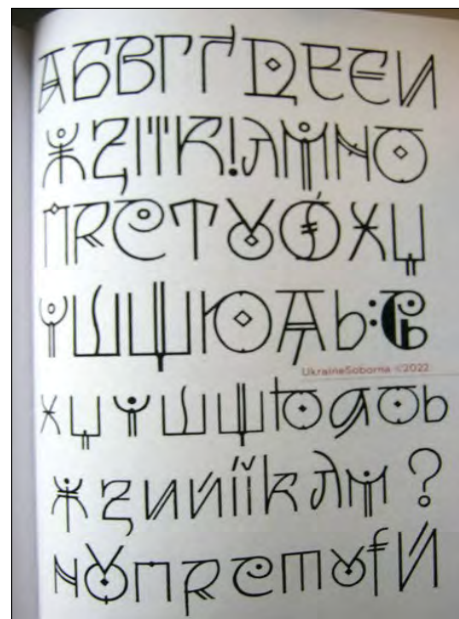 АБВГҐДЕЄИ
ЖЗІЇК!ЛМНО
ПРСТУФХЦ
ЧШЩЮЯЬ:
UkraineSoborna ©2022
хцчшщюяоь
жзийіїклм?
нопрстуфЙ